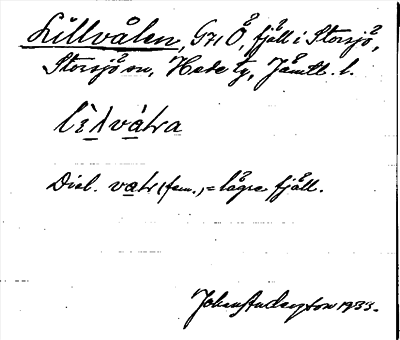 Lillvålen, G71 Ö, fjäll i Storsjö,
Storsjö sn, Hede tg, Jämtl. l.
lìlvátra
Dial. vatr (fem.) = lågre fjäll.
Johan Andersson 1933.